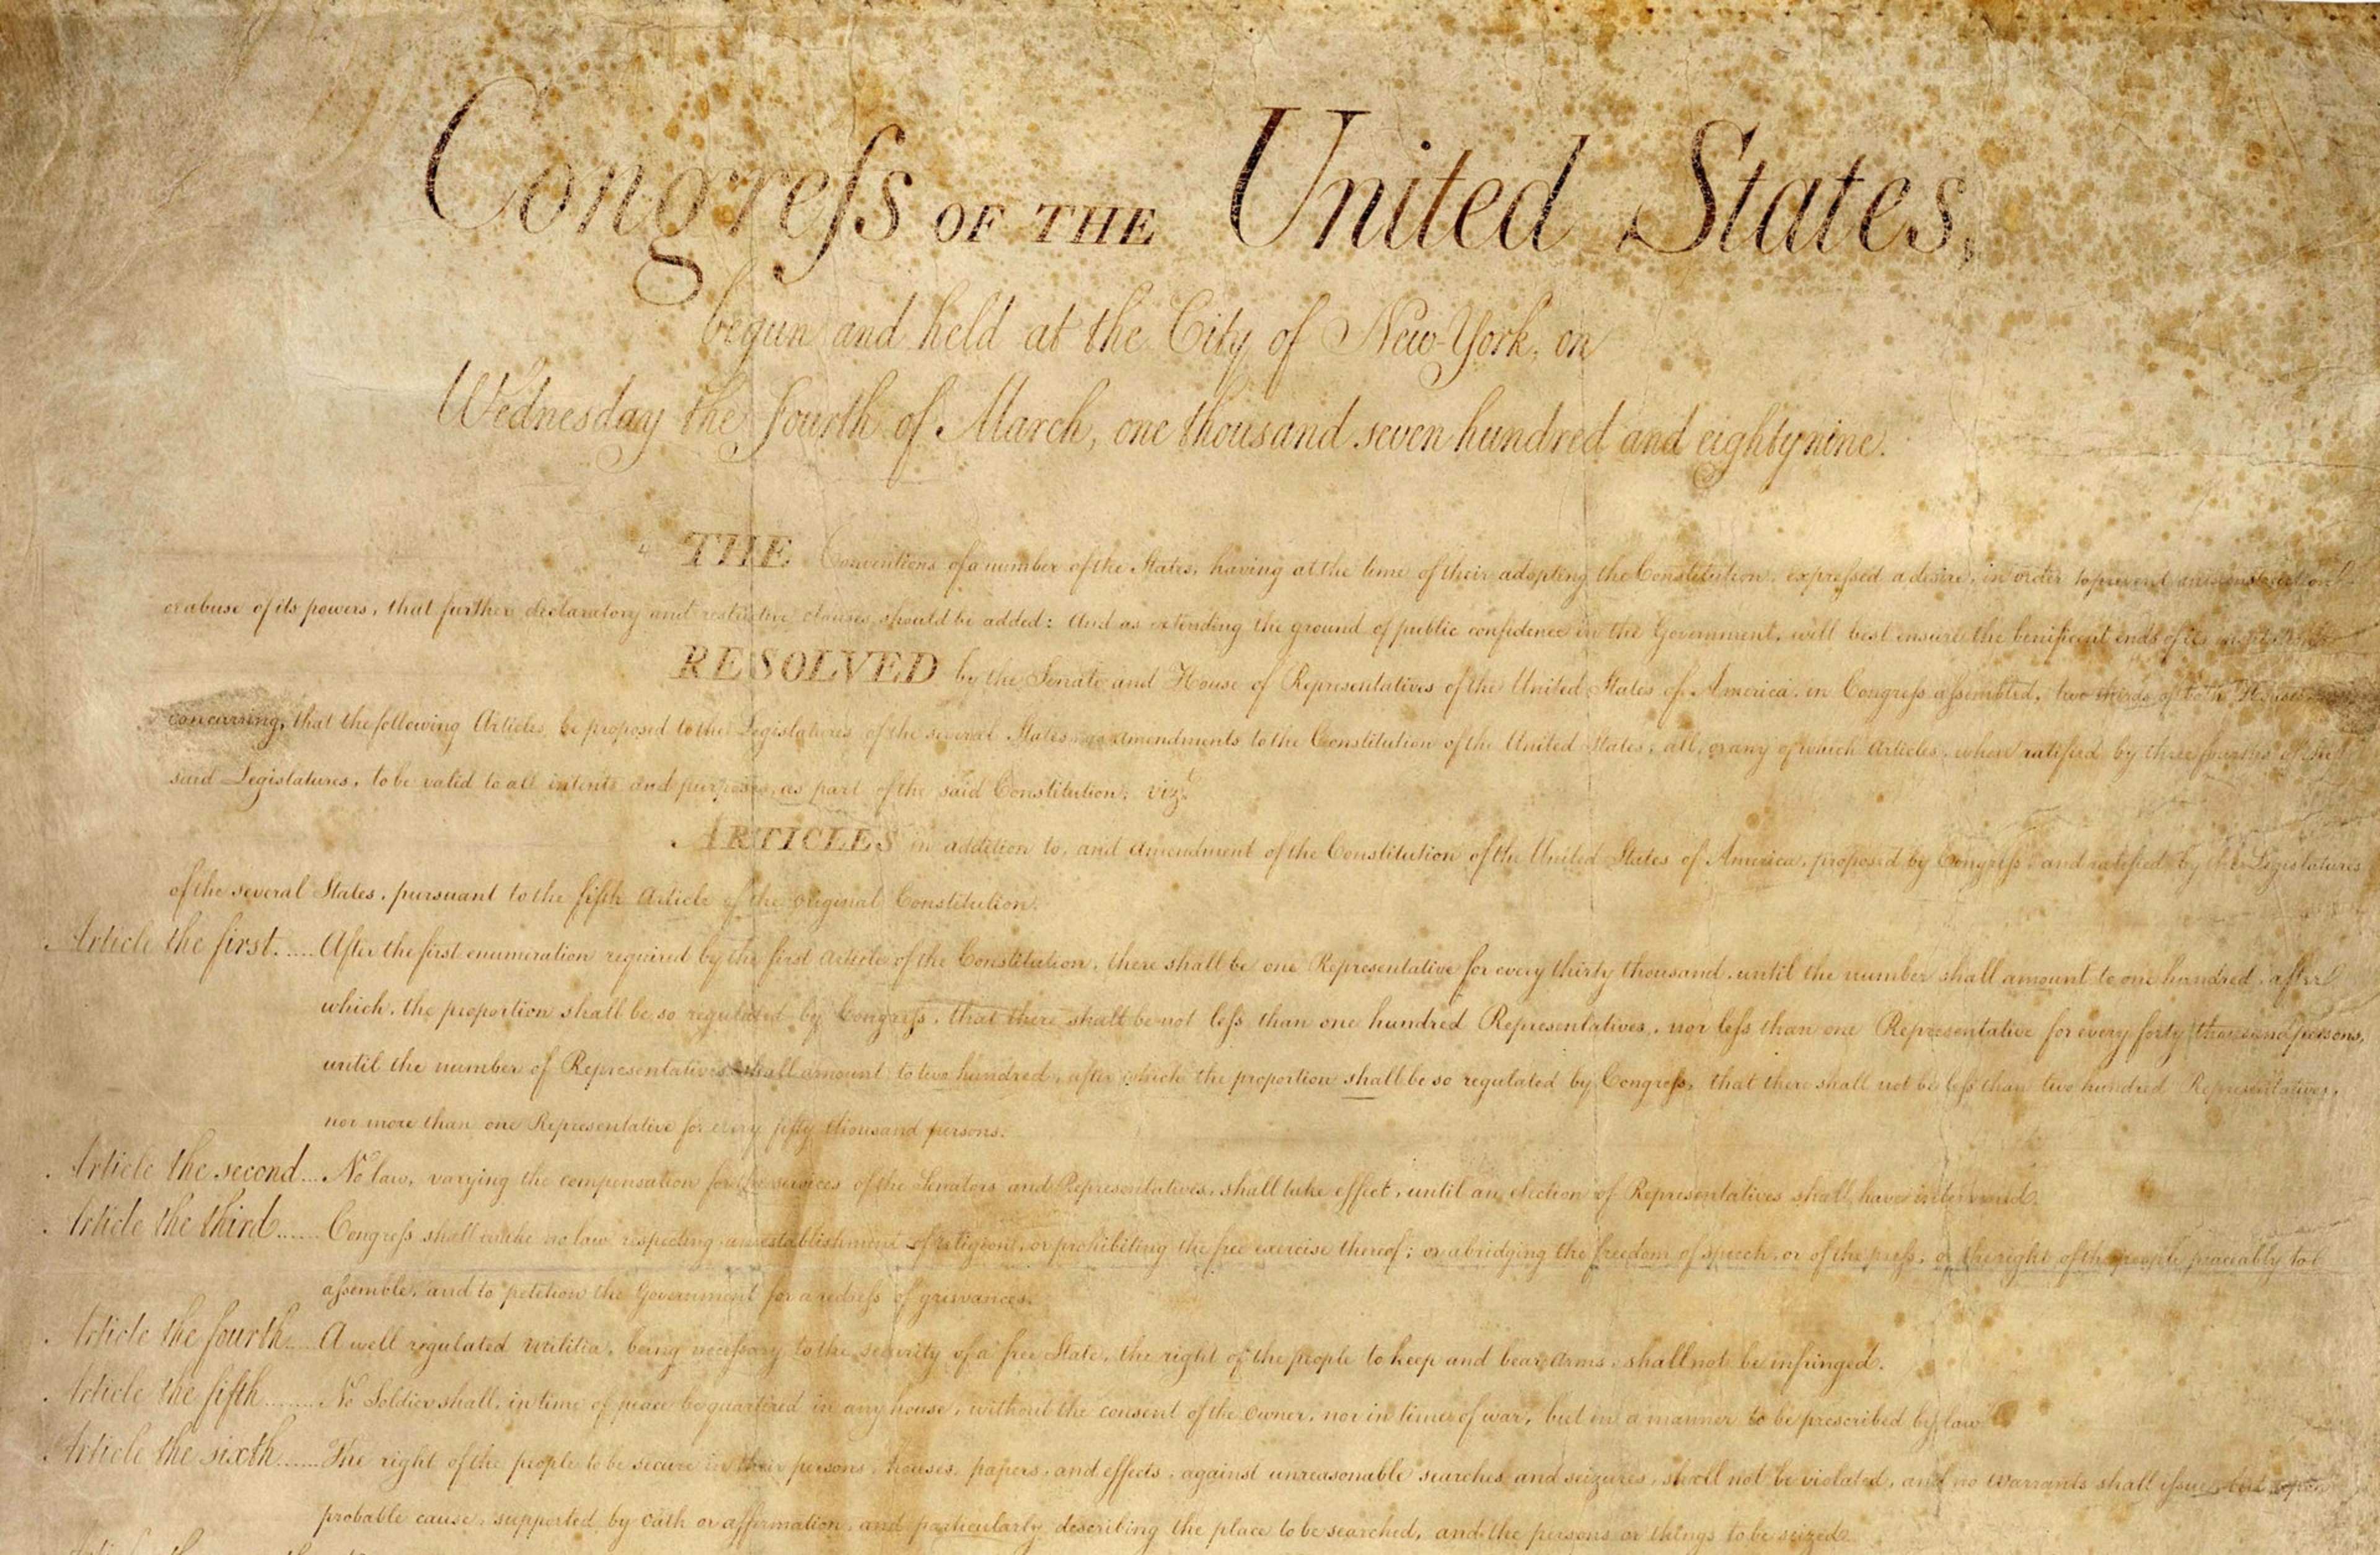 Congreſs OF THE United States,
begun and held at the City of New-York, on
Wednesday the fourth of March, one thousand seven hundred and eighty nine.
THE Conventions of a number of the States, having at the time of their adopting the Constitution, expreſsed a desire, in order to prevent misconstruction
or abuse of its powers, that further declaratory and restrictive clauses should be added: And as extending the ground of public confidence in the Government, will best ensure the benificent ends of its
RESOLVED by the Senate and House of Representatives of the United States of America, in Congreſs aſsembled, two thirds of both Houses
concurring, that the following Articles be proposed to the Legislatures of the several States, as amendments to the Constitution of the United States, all, or any of which Articles, when ratified by three fourths of the
said Legislatures, to be valid to all intents and purposes, as part of the said Constitution; vizt
ARTICLES in addition to, and amendment of the Constitution of the United States of America, proposed by Congreſs, and ratified by the Legislatures
of the several States, pursuant to the fifth Article of the original Constitution.
Article the first..... After the first enumeration required by the first Article of the Constitution, there shall be one Representative for every thirty thousand, until the number shall amount to one hundred, after
which, the proportion shall be so regulated by Congreſs, that there shall be not leſs than one hundred Representatives, nor leſs than one Representative for every forty thousand persons,
until the number of Representatives shall amount to two hundred, after which the proportion shall be so regulated by Congreſs, that there shall not be leſs than two hundred Representatives,
nor more than one Representative for every fifty thousand persons.
Article the second... No law, varying the compensation for the services of the Senators and Representatives, shall take effect, until an election of Representatives shall have intervened.
Article the third...... Congreſs shall make no law respecting an establishment of religion, or prohibiting the free exercise thereof; or abridging the freedom of speech, or of the preſs, or the right of the people peaceably to
aſsemble, and to petition the Government for a redreſs of grievances.
Article the fourth.... A well regulated militia, being neceſsary to the security of a free State, the right of the people to keep and bear Arms, shall not be infringed.
Article the fifth....... No Soldier shall, in time of peace be quartered in any house, without the consent of the owner, nor in time of war, but in a manner to be prescribed by law.
Article the sixth...... The right of the people to be secure in their persons, houses, papers, and effects, against unreasonable searches and seizures, shall not be violated, and no warrants shall iſsue, but upon
probable cause, supported by oath or affirmation, and particularly describing the place to be searched, and the persons or things to be seized.